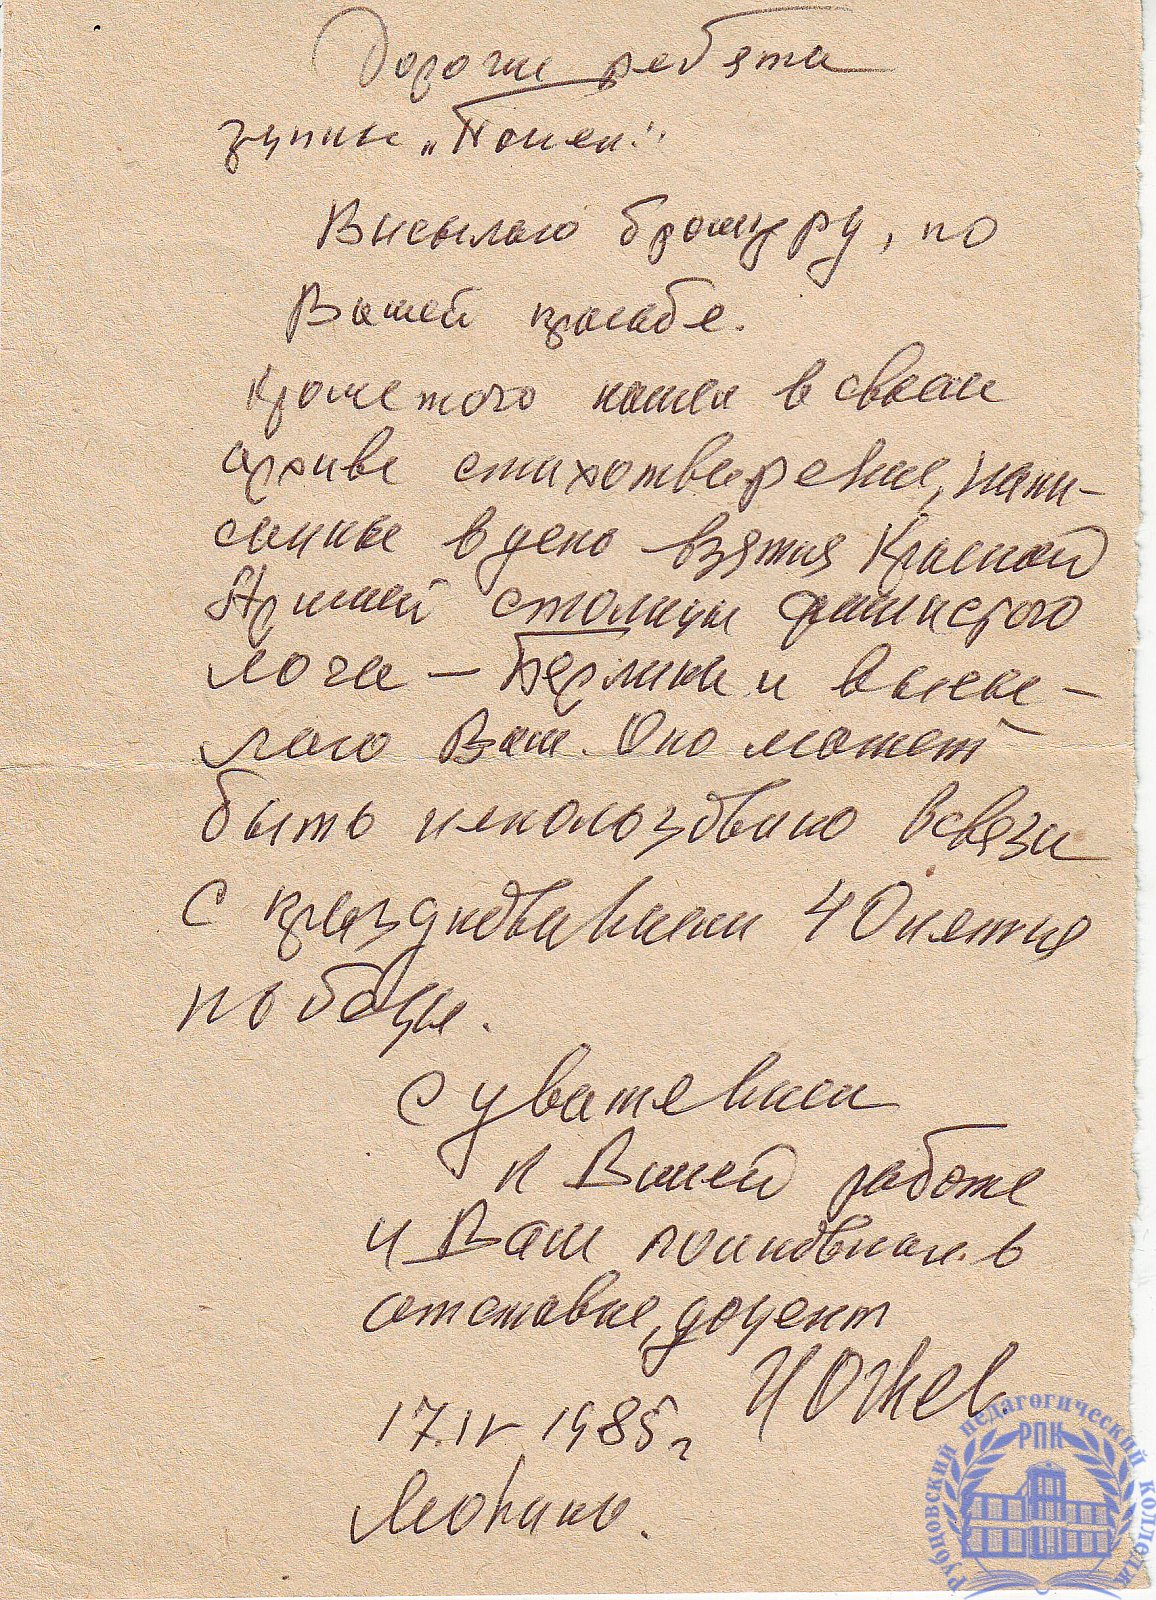 Дорогие ребята
группы „Поиск“
Высылаю брошуру, по
Вашей прозьбе.
Кроме того нашел в своем
архиве стихотворение, напи-
санное в день взятия Красной
Армией столицы фашистского
логова — Берлина и высы-
лаю Вам. Оно может
быть использовано в связи
с празднованием 40 летия
победы.
С уважением
к Вашей работе
и Вам полковник в
отставке, доцент
17.IV 1985 г
РПК
Рубцовский педагогический колледж